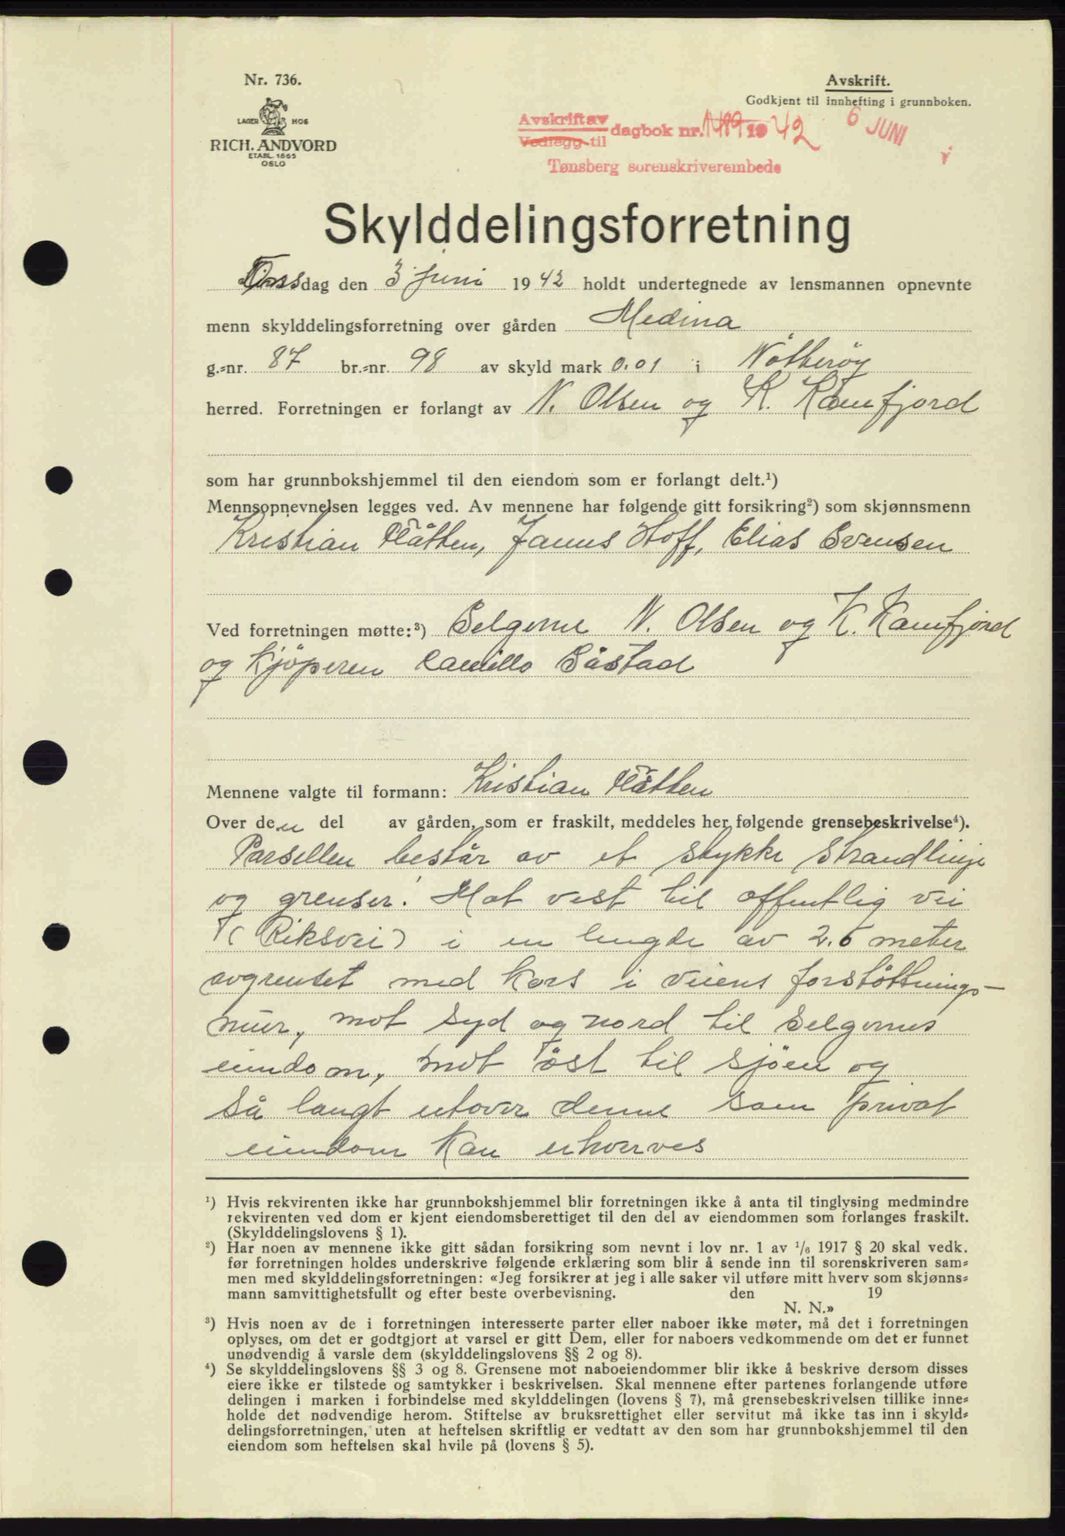 Nr. 736.
LAGER HOS
RICH. ANDVORD
ETABL. 1865
OSLO
Avskrift.
Godkjent til innhefting i grunnboken.
Avskrift av
Vedlegg til
dagbok nr. 1489 1942 6 JUNI
Tønsberg sorenskriverembede
Skylddelingsforretning
Onsdag den 3 juni 1942 holdt undertegnede av lensmannen opnevnte
menn skylddelingsforretning over gården Medina
g.-nr. 87 br.-nr. 98 av skyld mark 0.01 i Nötteröy
herred. Forretningen er forlangt av N. Olsen og K. Kamfjord
som har grunnbokshjemmel til den eiendom som er forlangt delt.¹)
Mennsopnevnelsen legges ved. Av mennene har følgende gitt forsikring²) som skjønnsmenn
Kristian Flåtten, Janus Hoff, Elias Evensen
Ved forretningen møtte:³) Selgerne N. Olsen og K. Kamfjord
og kjöperen Camillo Båstad
Mennene valgte til formann: Kristian Flåtten
Over den del av gården, som er fraskilt, meddeles her følgende grensebeskrivelse⁴).
Parsellen består av et stykke strandlinje
og grenser: Mot vest til offentlig vei
(Riksvei) i en lengde av 2.6 meter
avgrenset med kors i veiens forstöttnings-
mur, mot syd og nord til selgernes
eiendom, mot öst til sjöen og
så langt utover denne som privat
eiendom kan erhverves
¹) Hvis rekvirenten ikke har grunnbokshjemmel blir forretningen ikke å anta til tinglysing medmindre
rekvirenten ved dom er kjent eiendomsberettiget til den del av eiendommen som forlanges fraskilt.
(Skylddelingslovens § 1).
²) Har noen av mennene ikke gitt sådan forsikring som nevnt i lov nr. 1 av 1/6 1917 § 20 skal vedk.
før forretningen holdes underskrive følgende erklæring som blir å sende inn til sorenskriveren sam-
men med skylddelingsforretningen: «Jeg forsikrer at jeg i alle saker vil utføre mitt hverv som skjønns-
mann samvittighetsfullt og efter beste overbevisning. den 19
N. N.»
³) Hvis noen av de i forretningen interesserte parter eller naboer ikke møter, må det i forretningen
oplyses, om det er godtgjort at varsel er gitt Dem, eller for naboers vedkommende om det er funnet
unødvendig å varsle dem (skylddelingslovens §§ 2 og 8).
⁴) Se skylddelingslovens §§ 3 og 8. Grensene mot naboeiendommer blir ikke å beskrive dersom disses
eiere ikke er tilstede og samtykker i beskrivelsen. Skal mennene efter partenes forlangende utføre
delingen i marken i forbindelse med skylddelingen (lovens § 7), må grensebeskrivelsen tillike inne-
holde det nødvendige herom. Stiftelse av bruksrettighet eller servitut må ikke tas inn i skyld-
delingsforretningen, uten at heftelsen skriftlig er vedtatt av den som har grunnbokshjemmel til den
eiendom som heftelsen skal hvile på (lovens § 5).